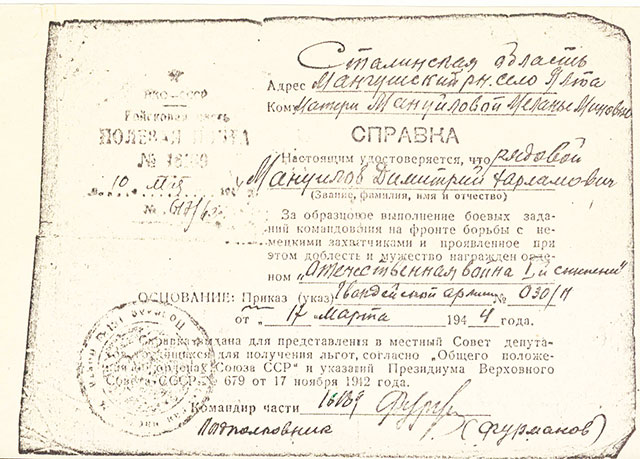 Сталинская область
Адрес Мангушский рн. село Ялта
Кому Матери Мануиловой Меланье
НКО-СССР
Войсковая часть
ПОЛЕВАЯ ПОЧТА
№
10
№ 617/
СПРАВКА
Настоящим удостоверяется, что рядовой
Мануилов Димитрий Харламович
(Звание, фамилия, имя и отчество)
За образцовое выполнение боевых зада-
ний командования на фронте борьбы с не-
мецкими захватчиками и проявленное при
этом доблесть и мужество награжден орде-
ном „Отечественная война I й степени"
ОСНОВАНИЕ: Приказ (указ) Гвардейской армии № 030/н
от „ 17 марта 1944 года.
Справка выдана для представления в местный Совет депута-
трудящихся для получения льгот, согласно „Общего положе-
орденах Союза ССР" и указаний Президиума Верховного
Совета СССР № 679 от 17 ноября 1942 года.
Командир части 16139
Подполковник (Фурманов)